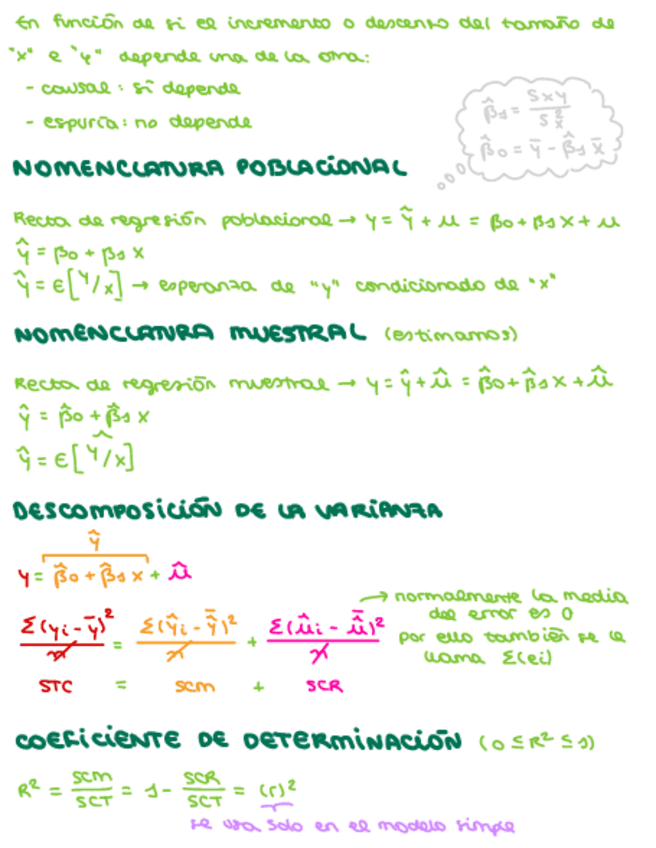 En función de si el incremento o descenso del tamaño de
"x" e "y" depende una de la otra:
- causal: sí depende
- espuria: no depende
β̂1 = Sxy / S²x
β̂0 = ȳ - β̂1 x̄
NOMENCLATURA POBLACIONAL
Recta de regresión poblacional → y = ŷ + u = β0 + β1 x + u
ŷ = β0 + β1 x
ŷ = E[y/x] → esperanza de "y" condicionado de "x"
NOMENCLATURA MUESTRAL (estimamos)
Recta de regresión muestral → y = ŷ + û = β̂0 + β̂1 x + û
ŷ = β̂0 + β̂1 x
ŷ = E[y/x]̂
DESCOMPOSICIÓN DE LA VARIANZA
ŷ
y = β̂0 + β̂1 x + û
→ normalmente la media
del error es 0
por ello también se le
llama Σ(ei)
Σ(yi - ȳ)² / n = Σ(ŷi - ŷ̄)² / n + Σ(ûi - û̄)² / n
STC = SCM + SCR
COEFICIENTE DE DETERMINACIÓN (0 ≤ R² ≤ 1)
R² = SCM / SCT = 1 - SCR / SCT = (r)²
se usa solo en el modelo simple